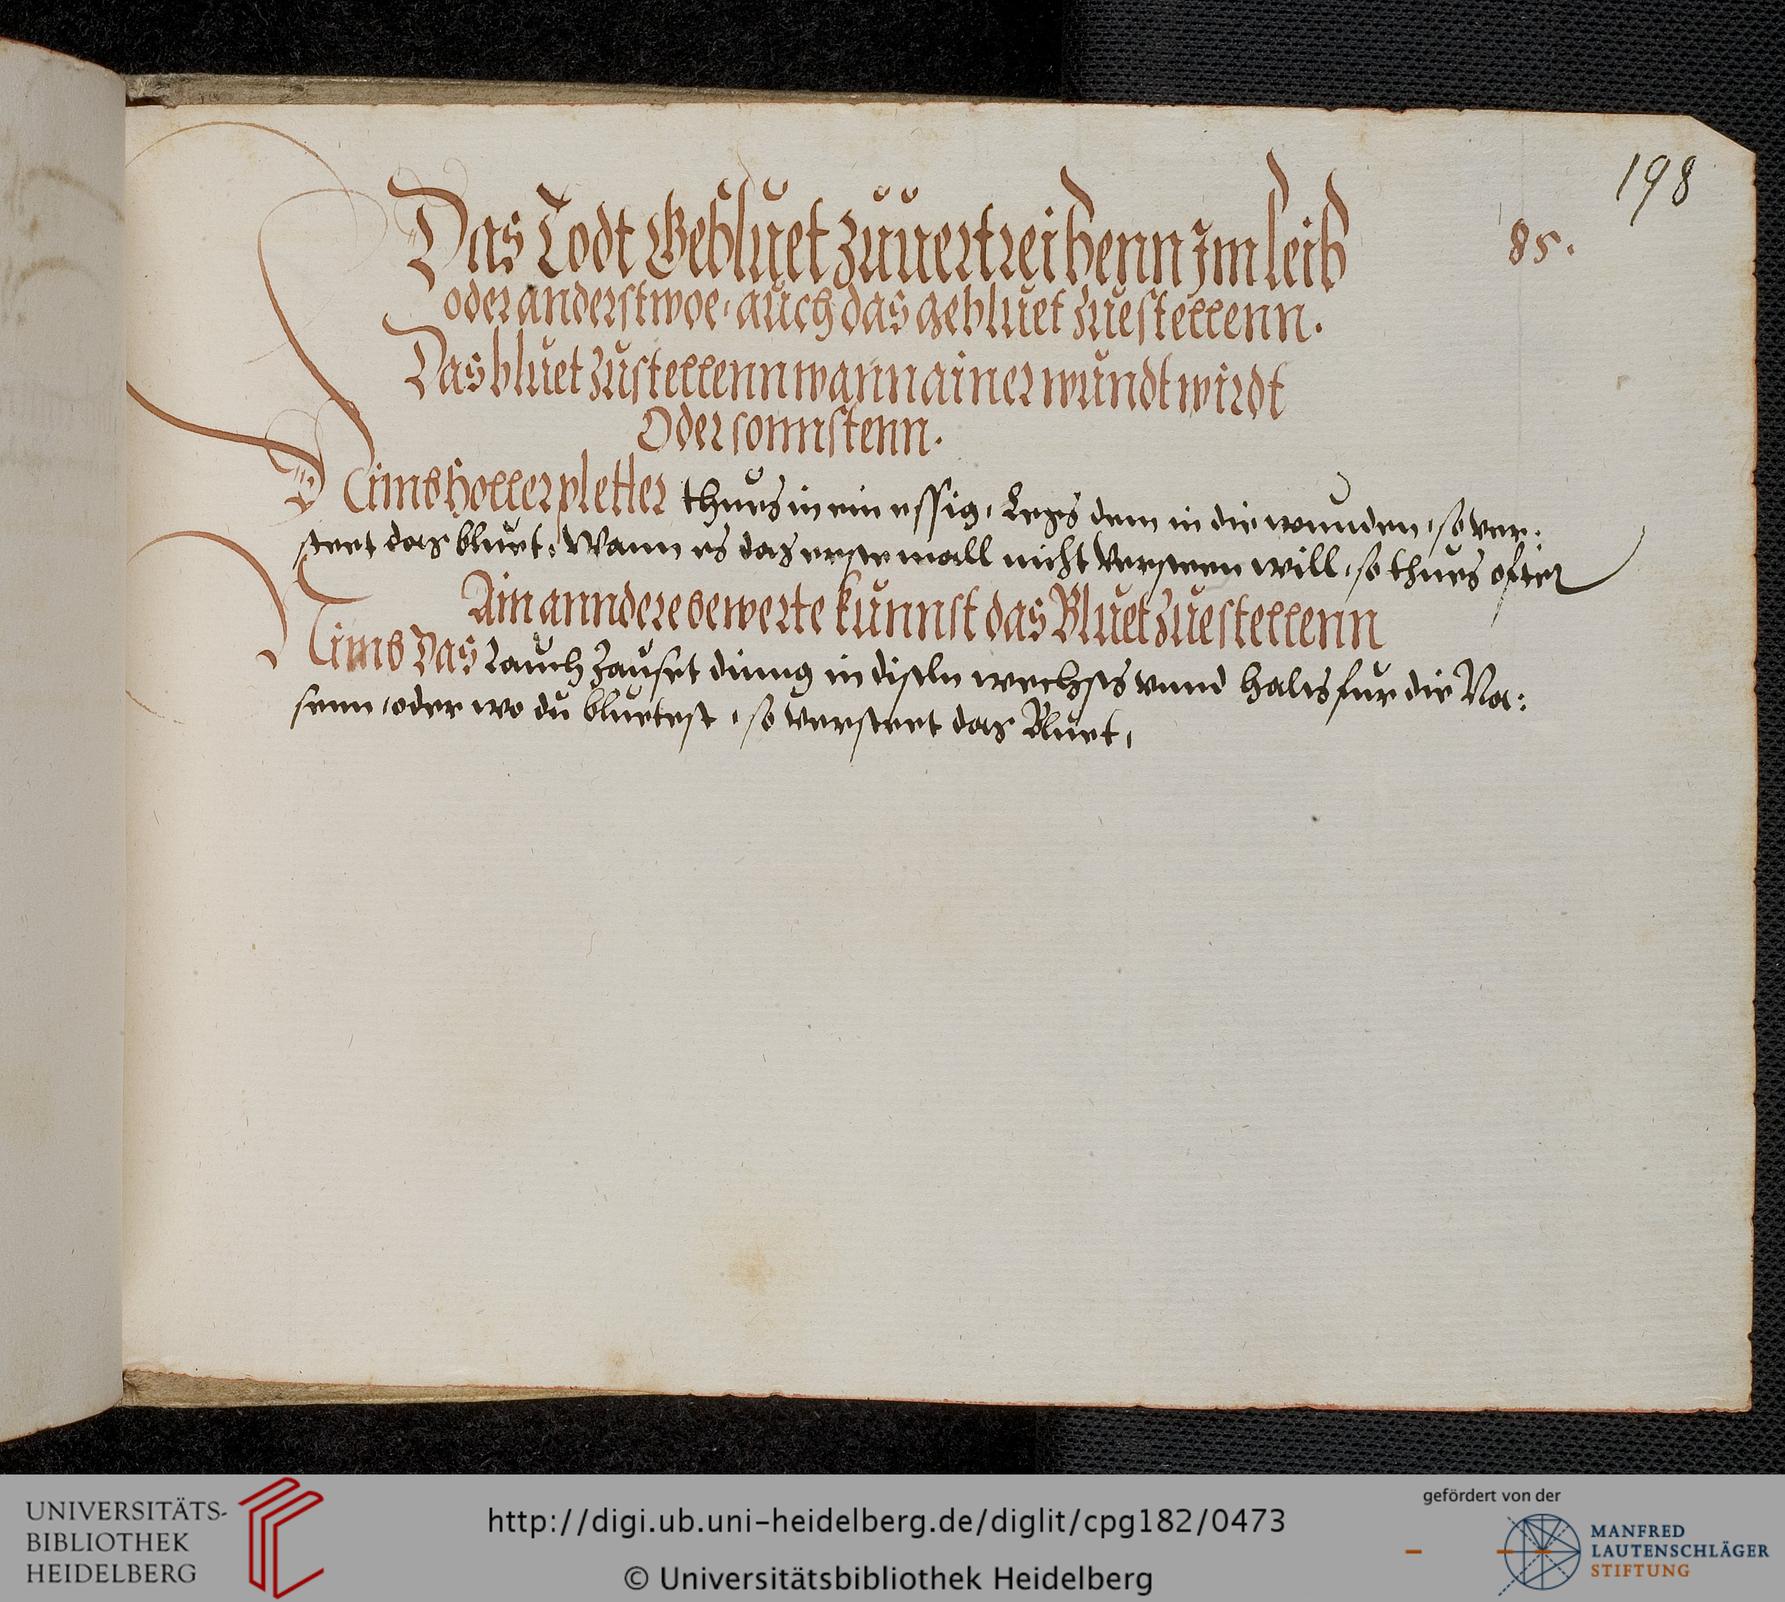 198
85.
Das Todt Gebluet zuuertreibenn Im leib
oder anderstwoe, auch das gebluet zuestellenn.
Das bluet zustellenn wann ainer wundt wirdt
Oder sonnstenn.
Nimb holler pletter thues in ein essig, Legs dem in die wunden, so ver:
steet das bluet, Wann es das erste mall nicht versteen will, so thues ofter
Ain anndere bewerte kunnst das Bluet zuestellenn
Nimb Das Rauch Zauset dinng in disteln wechsts vnnd halts fur die Na:
senn, oder wo du bluetest, so versteet das Bluet,
UNIVERSITÄTS-
BIBLIOTHEK
HEIDELBERG
http://digi.ub.uni-heidelberg.de/diglit/cpg182/0473
© Universitätsbibliothek Heidelberg
gefördert von der
MANFRED
LAUTENSCHLÄGER
STIFTUNG